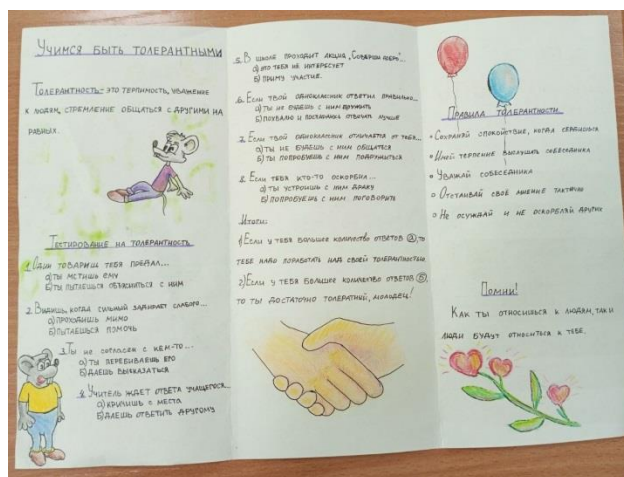 Учимся быть толерантными
Толерантность- это терпимость, уважение
к людям, стремление общаться с другими на
равных.
Тестирование на толерантность
1. Один товарищ тебя предал...
а) ты мстишь ему
б) ты пытаешься объясниться с ним
2. Видишь, когда сильный задирает слабого...
а) проходишь мимо
б) пытаешься помочь
3. Ты не согласен с кем-то...
а) ты перебиваешь его
б) даешь высказаться
4. Учитель ждет ответа учащегося...
а) кричишь с места
б) даешь ответить другому
5. В школе проходит акция "Сотвори добро"...
а) это тебя не интересует
б) приму участие.
6. Если твой одноклассник ответил правильно...
а) ты не будешь с ним дружить
б) похвалю и постараюсь отвечать лучше
7. Если твой одноклассник отличается от тебя...
а) ты не будешь с ним общаться
б) ты попробуешь с ним подружиться
8. Если тебя кто-то оскорбил...
а) ты устроишь с ним драку
б) попробуешь с ним поговорить
Итоги:
1) Если у тебя большее количество ответов (а), то
тебе надо поработать над своей толерантностью
2) Если у тебя большее количество ответов (б),
то ты достаточно толератний, молодец!
Правила толерантности
Сохраняй спокойствие, когда сердишься
Имей терпение выслушать собеседника
Уважай собеседника
Отстаивай своё мнение тактично
Не осуждай и не оскорбляй других
Помни!
Как ты относишься к людям, так и
люди будут относиться к тебе.